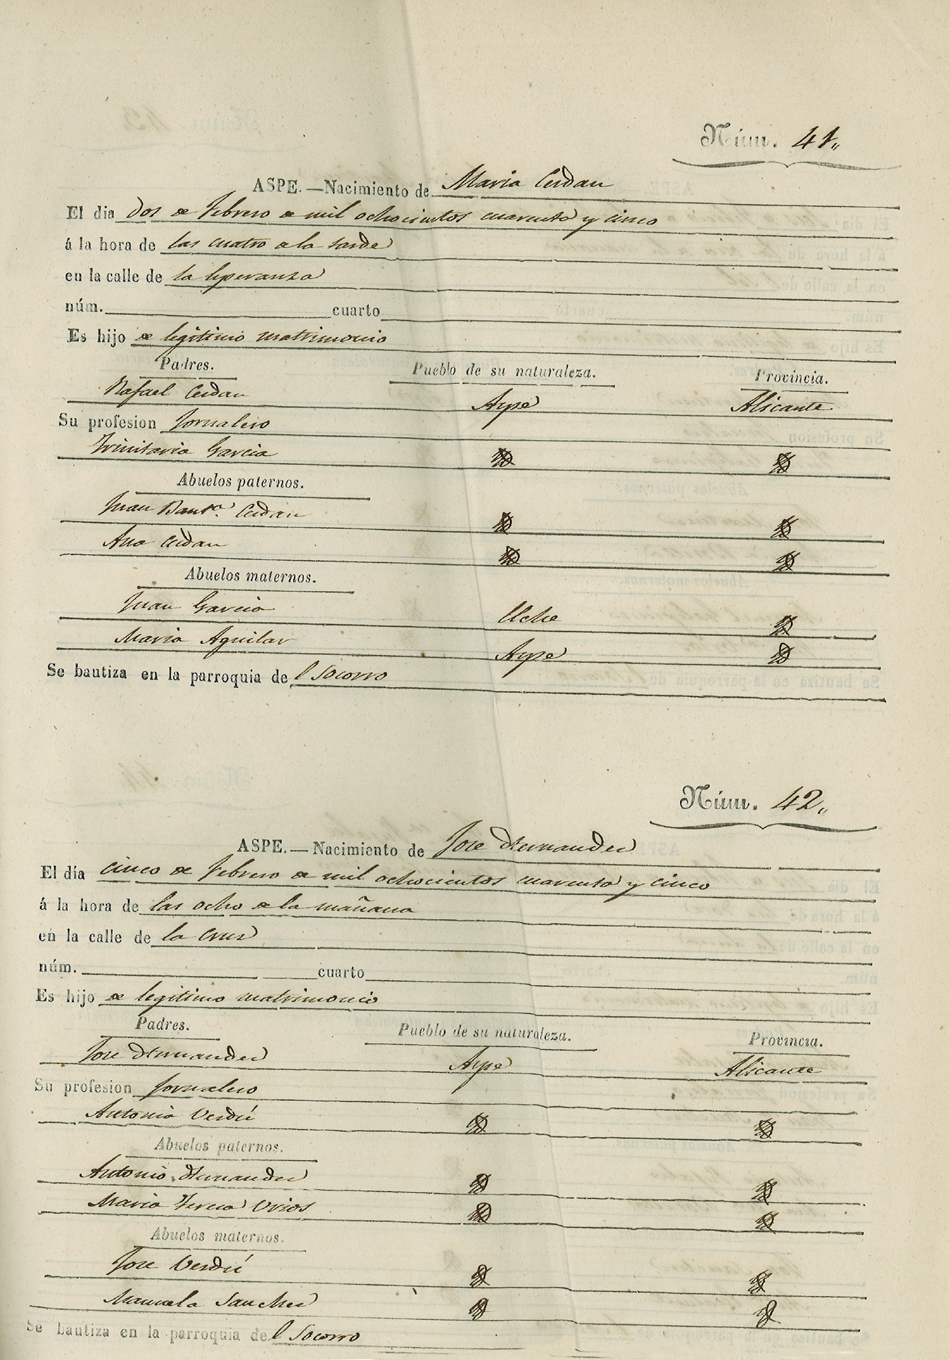 Núm. 41.
ASPE.—Nacimiento de Maria Cerdan
El dia dos de Febrero de mil ochocientos cuarenta y cinco
á la hora de las cuatro a la tarde
en la calle de la Esperanza
núm. cuarto
Es hijo de legitimo matrimonio
Padres. Pueblo de su naturaleza. Provincia.
Rafael Cerdan Aspe Alicante
Su profesion Jornalero
Trinitaria Garcia
Abuelos paternos.
Juan Baut.ª Cerdan
Ana Cerdan
Abuelos maternos.
Juan Garcia Elche
Maria Aguilar Aspe
Se bautiza en la parroquia de l Socorro
Núm. 42.
ASPE.—Nacimiento de Jose Hernandez
El día cinco de Febrero de mil ochocientos cuarenta y cinco
á la hora de las ocho de la mañana
en la calle de la Cruz
núm. cuarto
Es hijo de legitimo matrimonio
Padres. Pueblo de su naturaleza. Provincia.
Jose Hernandez Aspe Alicante
Su profesion Jornalero
Antonia Verdú
Abuelos paternos.
Antonio Hernandez
Maria Teresa Urios
Abuelos maternos.
Jose Verdú
Manuela Sanchez
Se bautiza en la parroquia de l Socorro